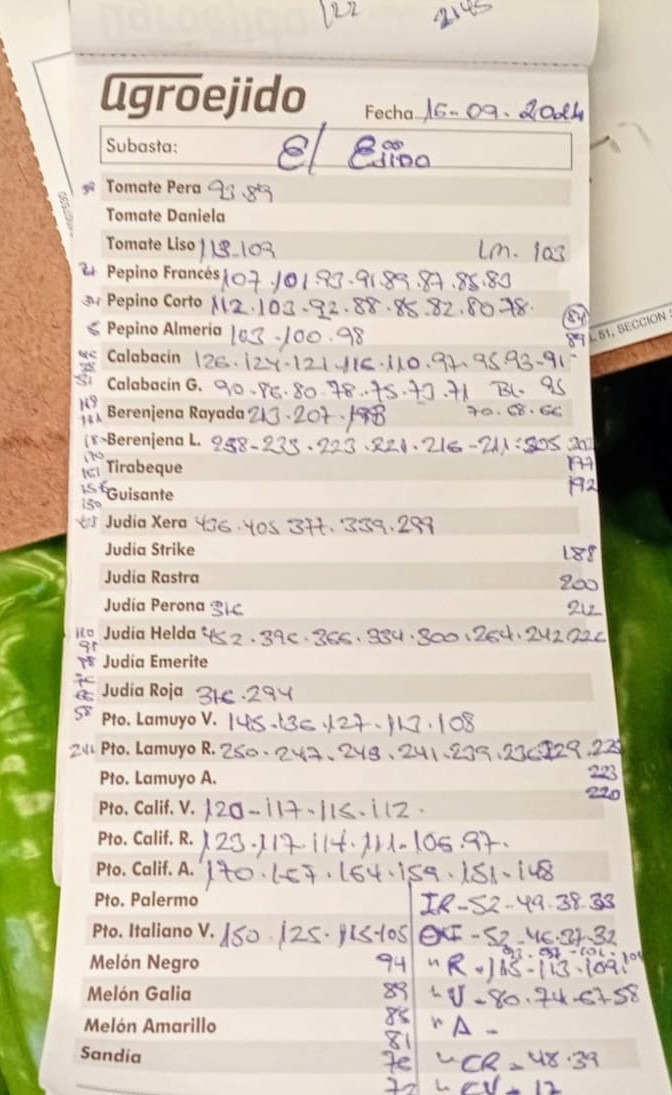 122 2145
agroejido
Fecha 16-09-2024
Subasta: El Ejido
Tomate Pera 93.89
Tomate Daniela
Tomate Liso 113-109 Lm. 103
Pepino Francés 107.101.93.91.89.87.85.83
Pepino Corto 112.103.92.88.85.82.80.78.
84
Pepino Almería 103.100.98
89 51, SECCION
Calabacín 126.124-121.116.110.97.95.93-91
Calabacín G. 90.86.80.78.75.73.71 BL. 95
Berenjena Rayada 213.207.198 70.68.66
Berenjena L. 238-233.223.221.216-211.205.202
Tirabeque 197
Guisante 192
Judía Xera 436.405 377.339.299
Judía Strike 188
Judía Rastra 200
Judía Perona 316 212
Judía Helda 452.396.366.334.300.264.242 226
Judía Emerite
Judía Roja 316.294
Pto. Lamuyo V. 145.136.127.113.108
Pto. Lamuyo R. 250.247.243.241.239.236 229.225
Pto. Lamuyo A. 223
220
Pto. Calif. V. 120-117-115.112.
Pto. Calif. R. 123.117.114.111.106.97.
Pto. Calif. A. 170.167.164.159.151.148
Pto. Palermo IR-52-49.38.33
Pto. Italiano V. 150.125.115-105 -52-46-37-32
Melón Negro 94 " R-115-113.109.
Melón Galia 89 " V-80.74-67 58
Melón Amarillo 85 " A -
81
Sandía 76 " CR-48.39
72 " CV-17